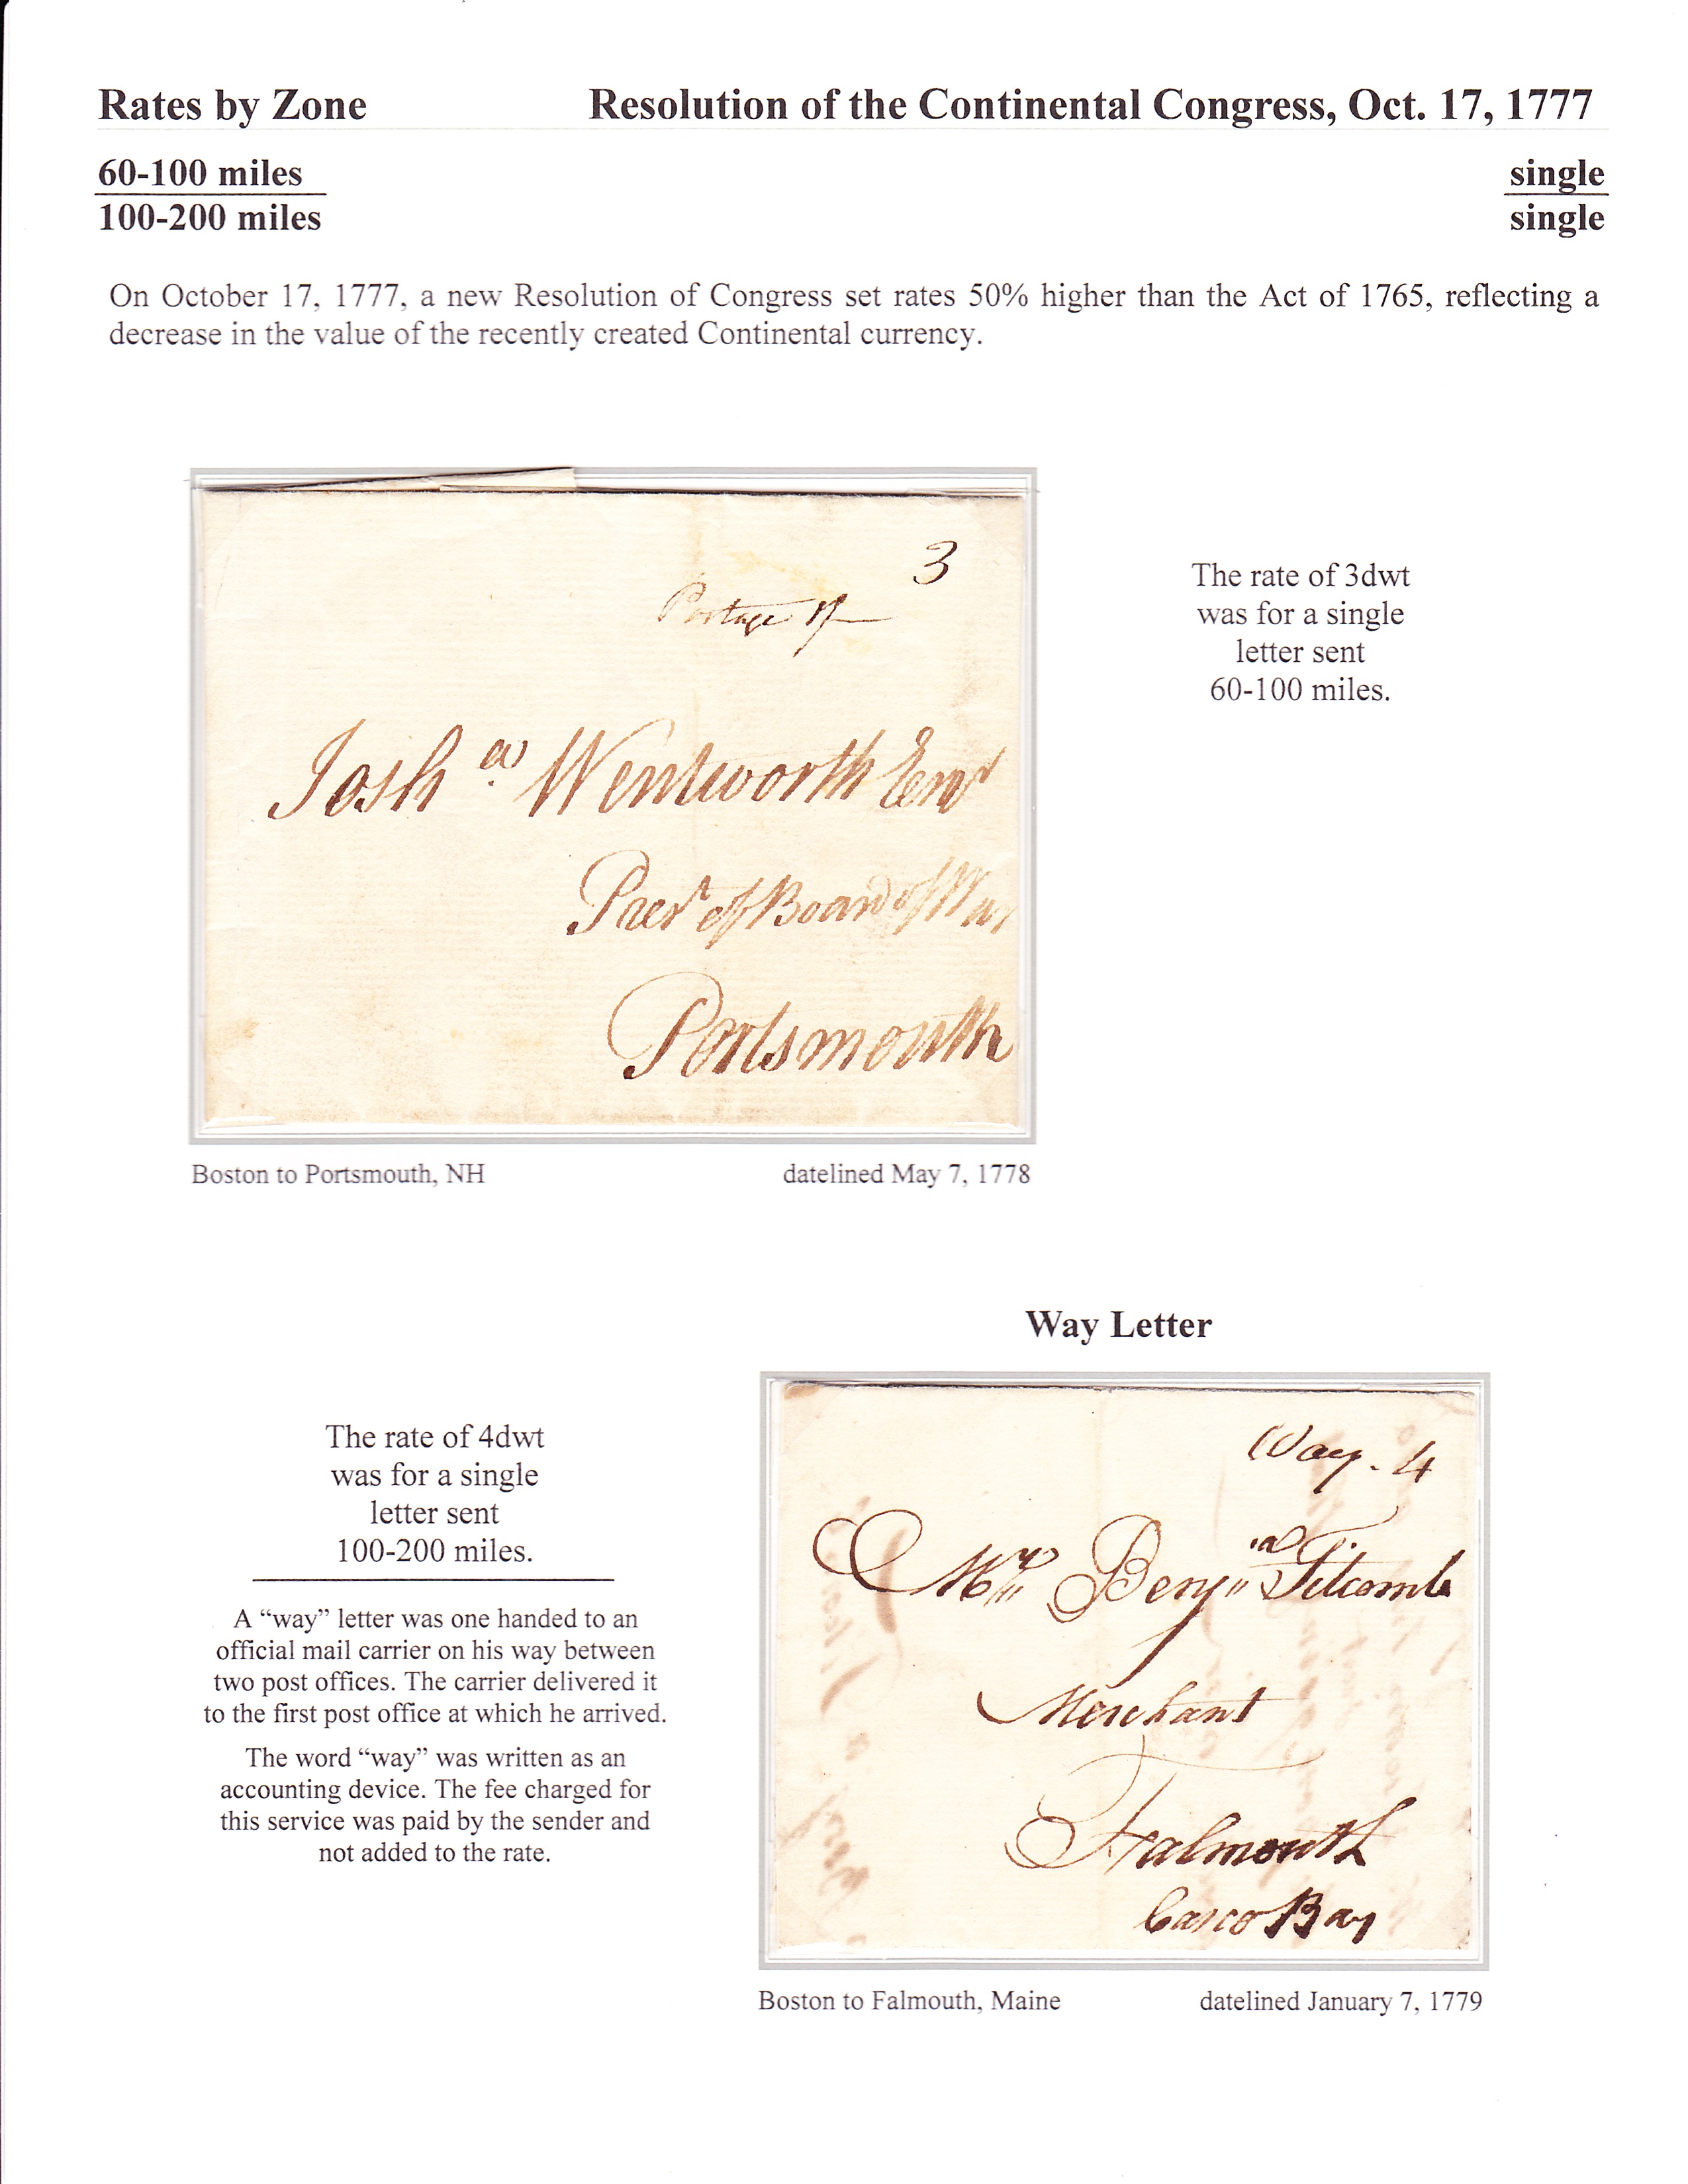 Rates by Zone Resolution of the Continental Congress, Oct. 17, 1777
60-100 miles single
100-200 miles single
On October 17, 1777, a new Resolution of Congress set rates 50% higher than the Act of 1765, reflecting a
decrease in the value of the recently created Continental currency.
3
Postage
Josh.a Wentworth
of Board of War
Portsmouth
The rate of 3dwt
was for a single
letter sent
60-100 miles.
Boston to Portsmouth, NH datelined May 7, 1778
Way Letter
The rate of 4dwt
was for a single
letter sent
100-200 miles.
A “way” letter was one handed to an
official mail carrier on his way between
two post offices. The carrier delivered it
to the first post office at which he arrived.
The word “way” was written as an
accounting device. The fee charged for
this service was paid by the sender and
not added to the rate.
Way. 4
Mr Benja Titcomb
Merchant
Falmouth
Casco Bay
Boston to Falmouth, Maine datelined January 7, 1779